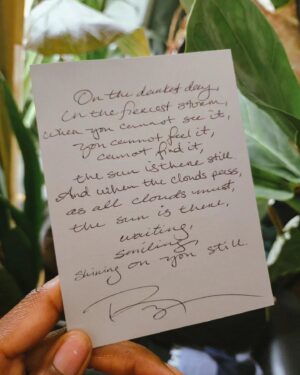 On the darkest day,
in the fiercest storm,
when you cannot see it,
you cannot feel it,
cannot find it,
the sun is there still
And when the clouds pass,
as all clouds must,
the sun is there,
waiting,
smiling,
shining on you still.